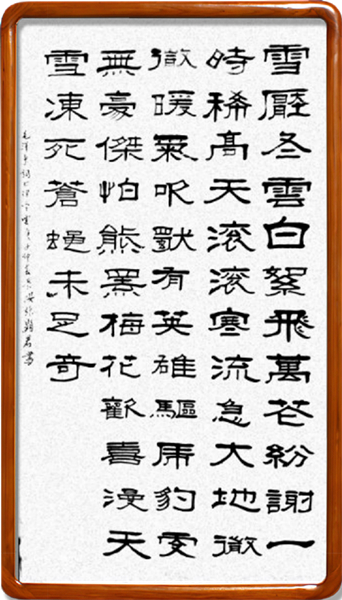 雪壓冬雲白絮飛萬花紛謝一
時稀高天滾滾寒流急大地微
微暖氣吹獨有英雄驅虎豹更
無豪傑怕熊羆梅花歡喜漫天
雪凍死蒼蠅未足奇
毛澤東詞書